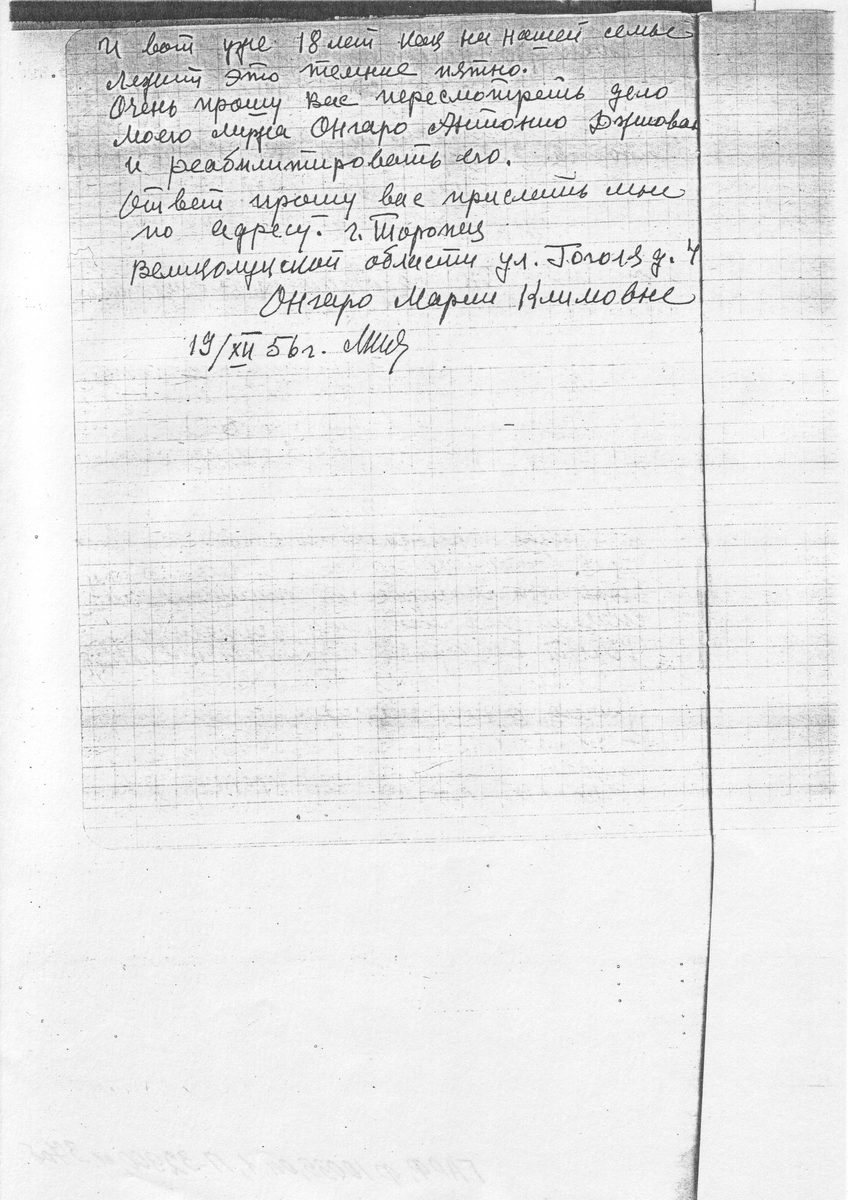 И вот уже 18 лет как на нашей семье
лежит это темное пятно.
Очень прошу вас пересмотреть дело
моего мужа Онгаро Антонио Джиован
и реабилитировать его.
Ответ прошу вас прислать мне
по адресу: г. Торопец
Великолукской области ул. Гоголя д. 4
Онгаро Марии Климовне
19/XII 56 г.